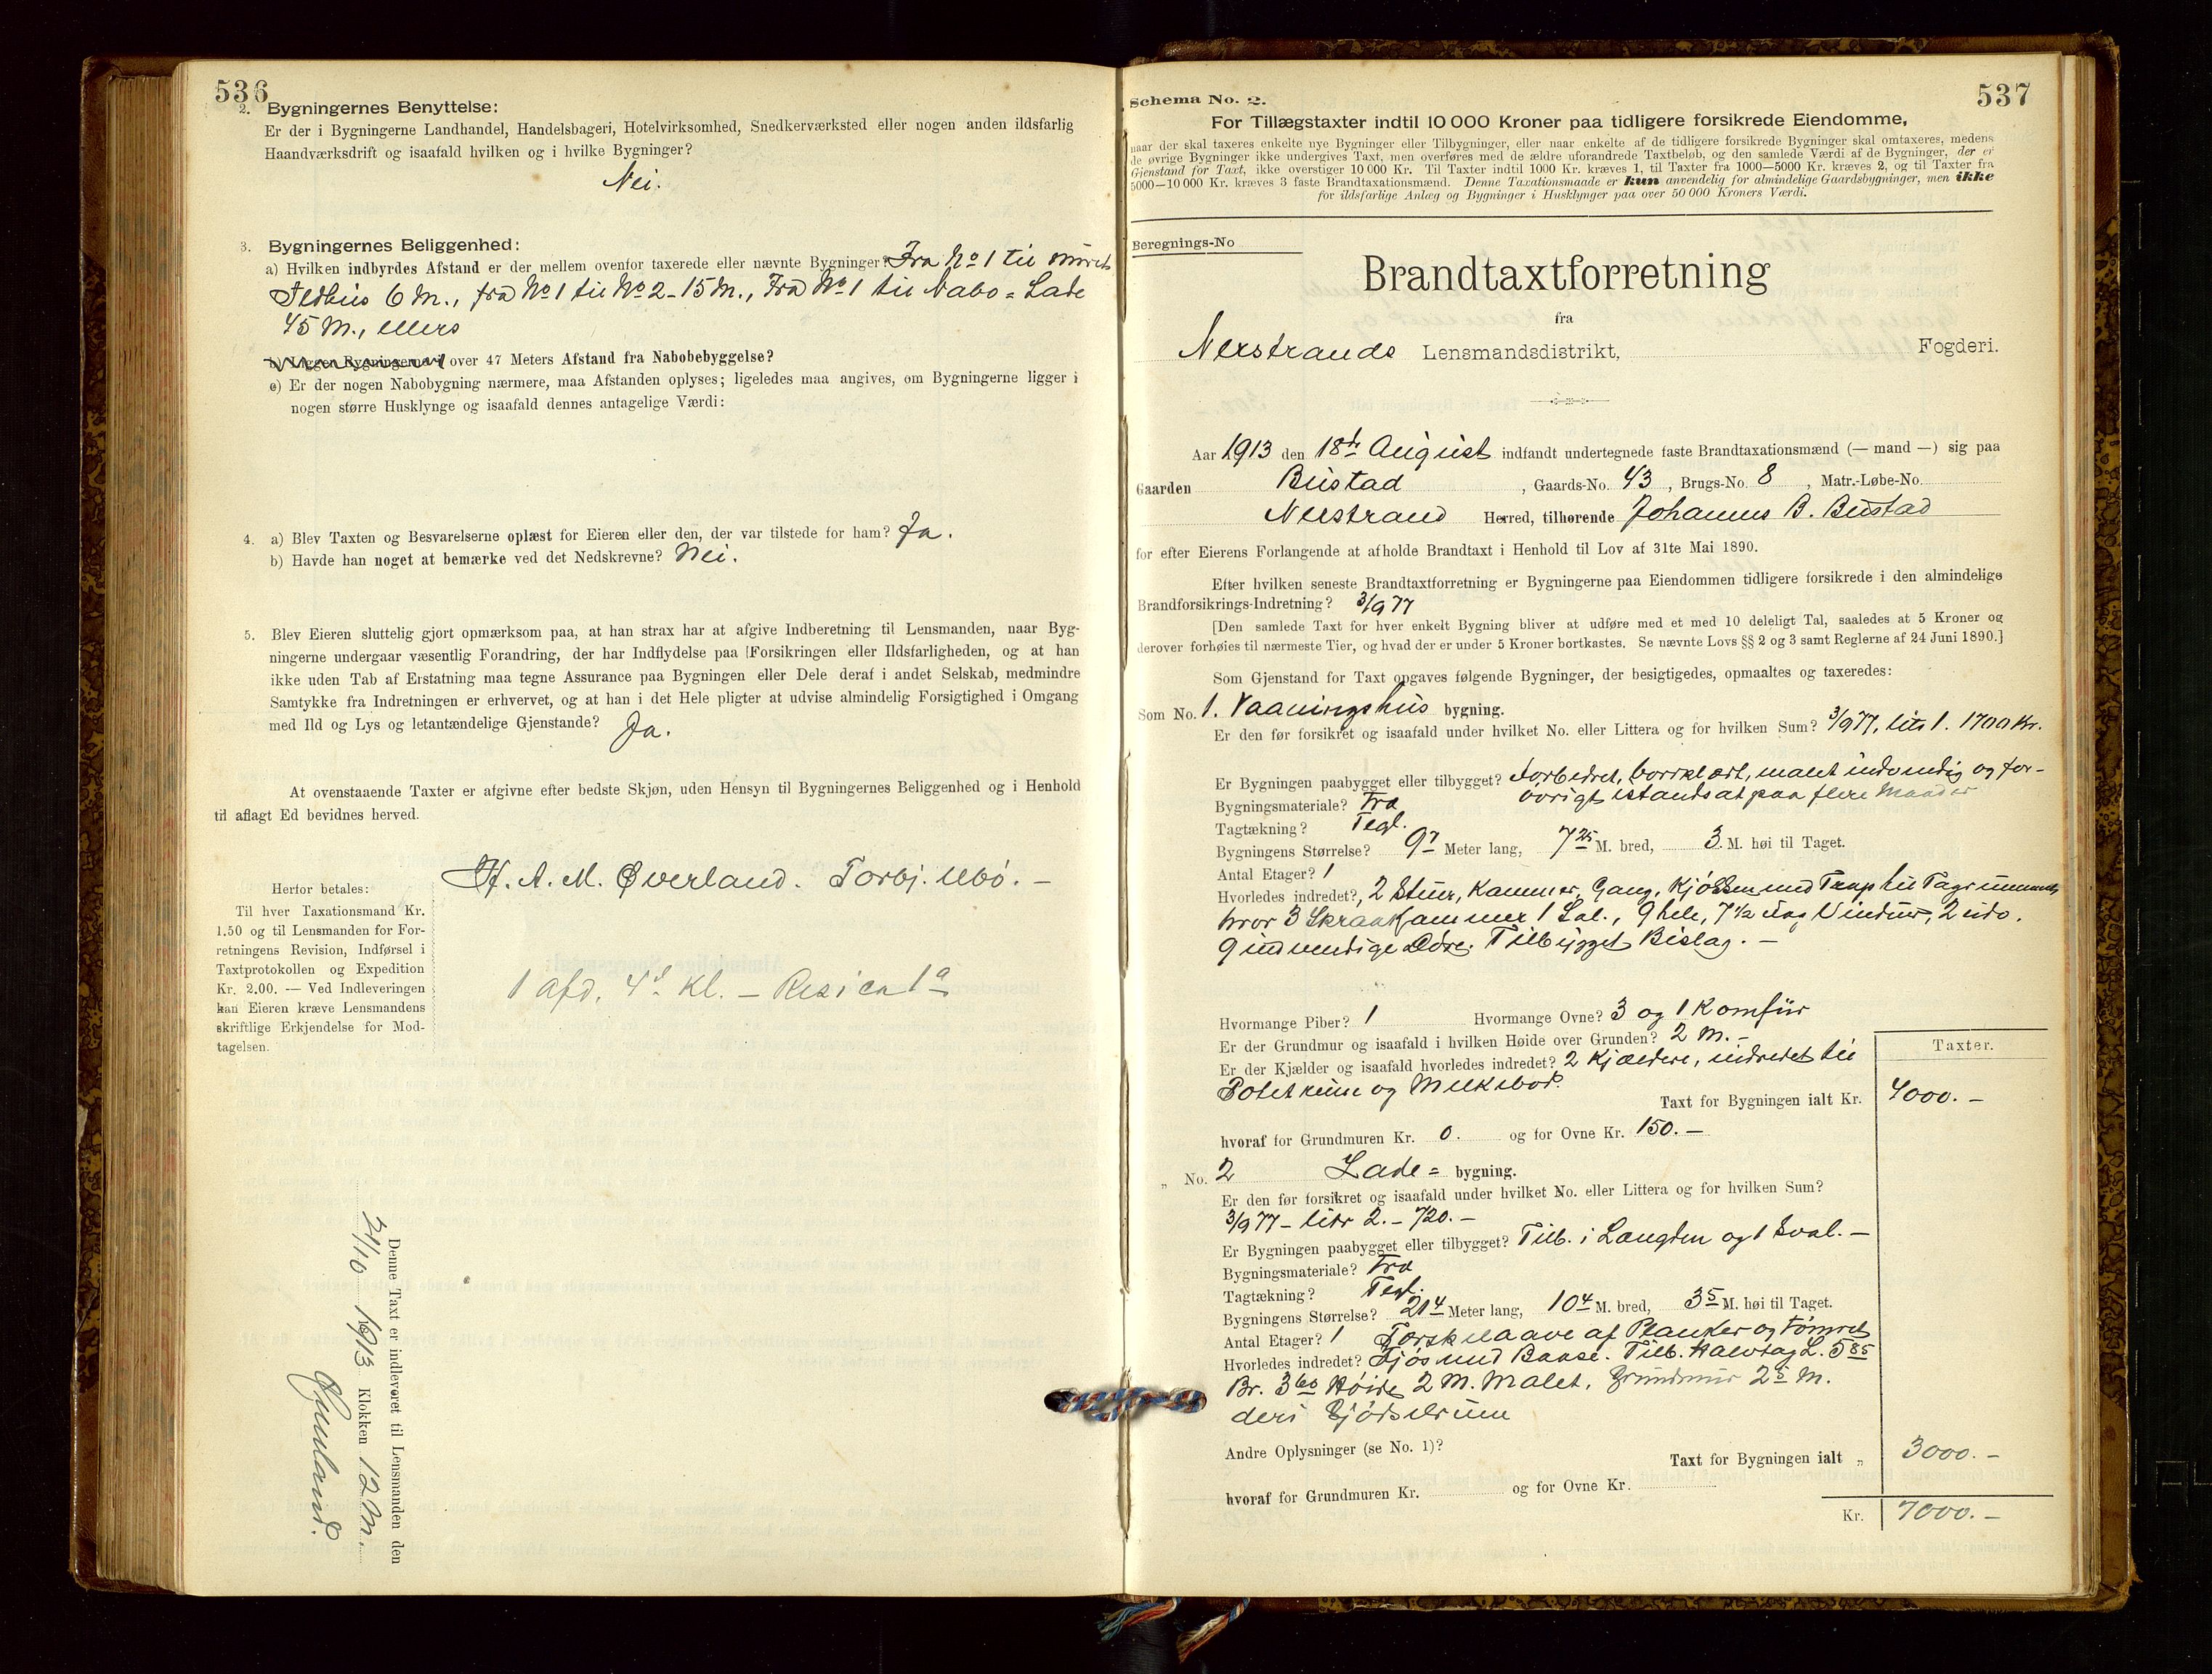 536
2. Bygningernes Benyttelse:
Er der i Bygningerne Landhandel, Handelsbageri, Hotelvirksomhed, Snedkerværksted eller nogen anden ildsfarlig
Haandværksdrift og isaafald hvilken og i hvilke Bygninger?
Nei.
3. Bygningernes Beliggenhed:
a) Hvilken indbyrdes Afstand er der mellem ovenfor taxerede eller nævnte Bygninger? Fra No 1 til muret
Ildhus 6 M., fra No 1 til No 2 - 15 M., Fra No 1 til Nabo = Lade
45 M., ellers
b) Ligger Bygningerne over 47 Meters Afstand fra Nabobebyggelse?
c) Er der nogen Nabobygning nærmere, maa Afstanden oplyses; ligeledes maa angives, om Bygningerne ligger i
nogen større Husklynge og isaafald dennes antagelige Værdi:
4. a) Blev Taxten og Besvarelserne oplæst for Eieren eller den, der var tilstede for ham? Ja.
b) Havde han noget at bemærke ved det Nedskrevne? Nei.
5. Blev Eieren sluttelig gjort opmærksom paa, at han strax har at afgive Indberetning til Lensmanden, naar Byg-
ningerne undergaar væsentlig Forandring, der har Indflydelse paa Forsikringen eller Ildsfarligheden, og at han
ikke uden Tab af Erstatning maa tegne Assurance paa Bygningen eller Dele deraf i andet Selskab, medmindre
Samtykke fra Indretningen er erhvervet, og at han i det Hele pligter at udvise almindelig Forsigtighed i Omgang
med Ild og Lys og letantændelige Gjenstande? Ja.
At ovenstaaende Taxter er afgivne efter bedste Skjøn, uden Hensyn til Bygningernes Beliggenhed og i Henhold
til aflagt Ed bevidnes herved.
H. A. M. Øverland. Torbj. Ubø. -
Herfor betales:
Til hver Taxationsmand Kr.
1.50 og til Lensmanden for For-
retningens Revision, Indførsel i
Taxtprotokollen og Expedition
Kr. 2.00. — Ved Indleveringen
kan Eieren kræve Lensmandens
skriftlige Erkjendelse for Mod-
tagelsen.
1 afd. 4d Kl. - Resico 1a
Denne Taxt er indleveret til Lensmanden den
1913 Klokken 12 M.
537
Schema No. 2.
For Tillægstaxter indtil 10 000 Kroner paa tidligere forsikrede Eiendomme,
naar der skal taxeres enkelte nye Bygninger eller Tilbygninger, eller naar enkelte af de tidligere forsikrede Bygninger skal omtaxeres, medens
de øvrige Bygninger ikke undergives Taxt, men overføres med de ældre uforandrede Taxtbeløb, og den samlede Værdi af de Bygninger, der er
Gjenstand for Taxt, ikke overstiger 10 000 Kr. Til Taxter indtil 1000 Kr. kræves 1, til Taxter fra 1000—5000 Kr. kræves 2, og til Taxter fra
5000—10 000 Kr. kræves 3 faste Brandtaxationsmænd. Denne Taxationsmaade er kun anvendelig for almindelige Gaardsbygninger, men ikke
for ildsfarlige Anlæg og Bygninger i Husklynger paa over 50 000 Kroners Værdi.
Beregnings-No
Brandtaxtforretning
fra
Nerstrands Lensmandsdistrikt, Fogderi.
Aar 1913 den 18de August indfandt undertegnede faste Brandtaxationsmænd (— mand —) sig paa
Gaarden Bustad, Gaards-No. 43, Brugs-No. 8, Matr.-Løbe-No.
Nerstrand Herred, tilhørende Johannes B. Bustad
for efter Eierens Forlangende at afholde Brandtaxt i Henhold til Lov af 31te Mai 1890.
Efter hvilken seneste Brandtaxtforretning er Bygningerne paa Eiendommen tidligere forsikrede i den almindelige
Brandforsikrings-Indretning? 3/9 77
[Den samlede Taxt for hver enkelt Bygning bliver at udføre med et med 10 deleligt Tal, saaledes at 5 Kroner og
derover forhøies til nærmeste Tier, og hvad der er under 5 Kroner bortkastes. Se nævnte Lovs §§ 2 og 3 samt Reglerne af 24 Juni 1890.]
Som Gjenstand for Taxt opgaves følgende Bygninger, der besigtigedes, opmaaltes og taxeredes:
Som No. 1. Vaaningshus bygning.
Er den før forsikret og isaafald under hvilket No. eller Littera og for hvilken Sum? 3/9 77, litr 1. 1700 Kr.
Er Bygningen paabygget eller tilbygget? Forbedret, bordklædt, malet indvendig og for-
øvrigt istandsat paa flere Maader
Bygningsmateriale? Træ
Tagtækning? Tegl.
Bygningens Størrelse? 9 7 Meter lang, 7 25 M. bred, 3 M. høi til Taget.
Antal Etager? 1
Hvorledes indredet? 2 Stuer, Kammer, Gang, Kjøkken med Trap til Tagrummet
hvor 3 Skraakammer 1 Sal., 9 hele, 7 1/2 Fag Vinduer, 2 udv.
9 indvendige Døre. Tilbygget Bislag. -
Hvormange Piber? 1 Hvormange Ovne? 3 og 1 Komfur
Er der Grundmur og isaafald i hvilken Høide over Grunden? 2 M. -
Er der Kjælder og isaafald hvorledes indredet? 2 Kjældere, indredet til
Potetrum og Melkebod.
Taxter.
Taxt for Bygningen ialt Kr. 4000. -
hvoraf for Grundmuren Kr. 0. og for Ovne Kr. 150. -
„ No. 2 Lade = bygning.
Er den før forsikret og isaafald under hvilket No. eller Littera og for hvilken Sum?
3/9 77 - litr 2. - 720. -
Er Bygningen paabygget eller tilbygget? Tilb. i Længden og 1 Sval. -
Bygningsmateriale? Træ
Tagtækning? Tegl.
Bygningens Størrelse? 21 4 Meter lang, 10 4 M. bred, 3 5 M. høi til Taget.
Antal Etager? 1 Tærskelaave af Planker og tømret
Hvorledes indredet? Fjøs med Baase. Tilb. Halvtag L. 5 85
Br. 3 60 Høide 2 M. Malet. Grundmur 2 5 M.
deri Gjødselrum
Andre Oplysninger (se No. 1)?
Taxt for Bygningen ialt „ 3000. -
hvoraf for Grundmuren Kr. og for Ovne Kr.
Kr. 7000. -